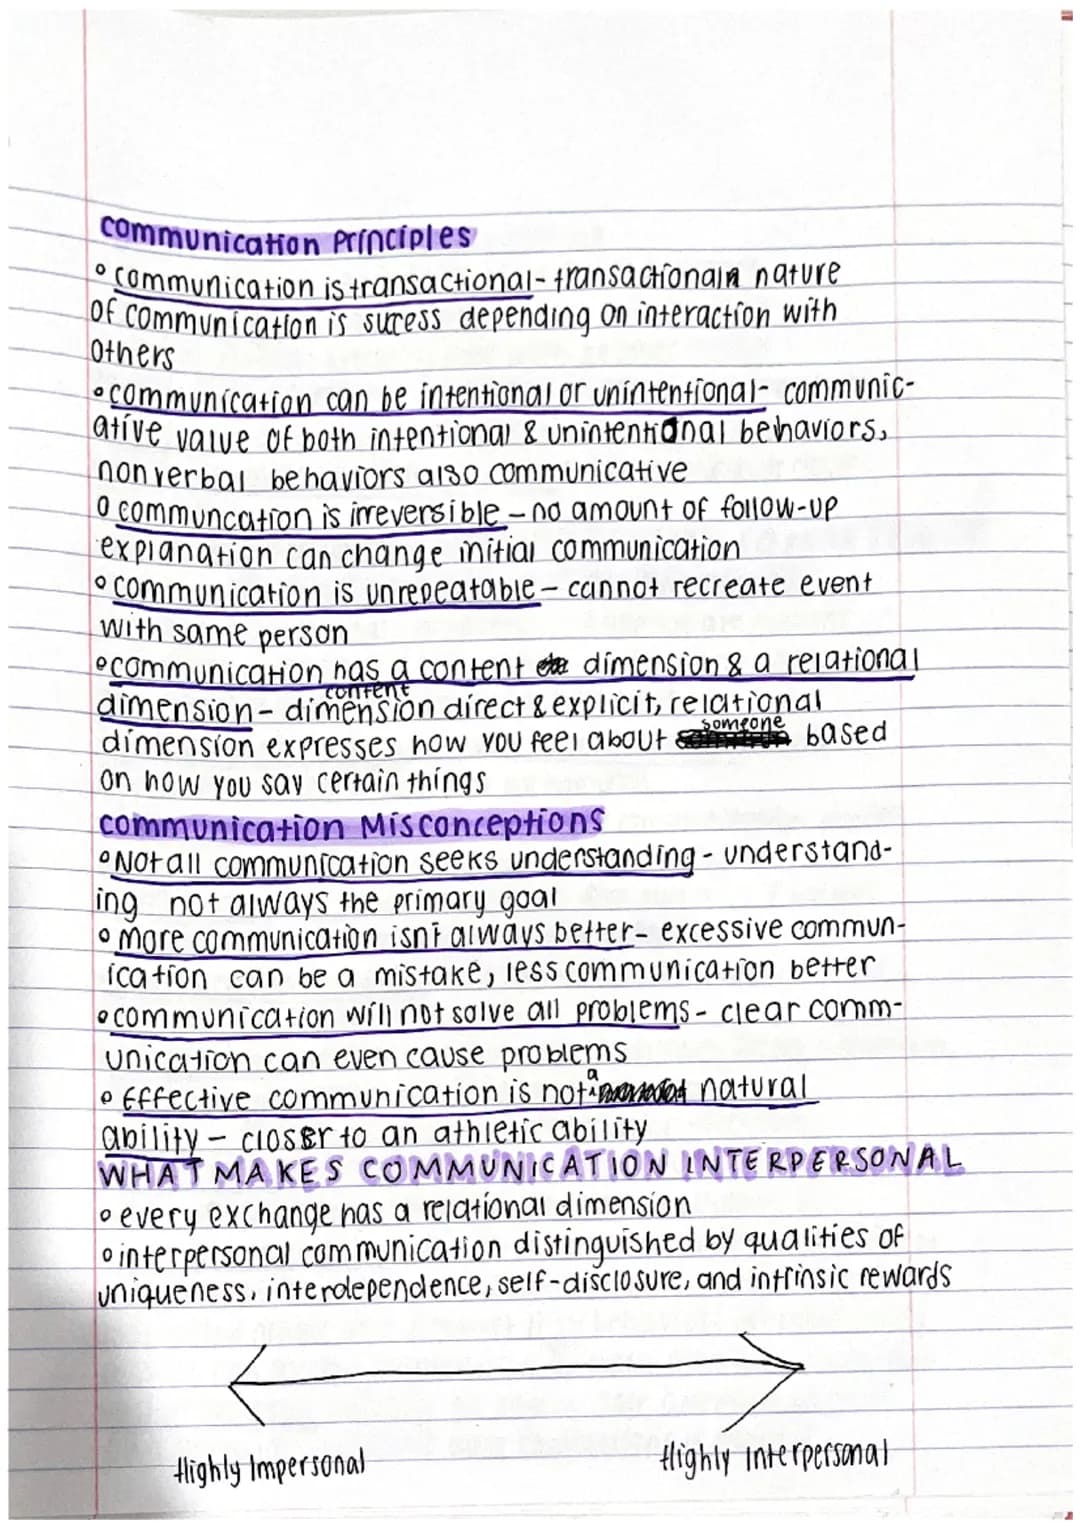 communication Principles
° communication is transactional - transactional nature
of communication is sucess depending on interaction with
others
° communication can be intentional or unintentional - communic-
ative value of both intentional & unintentional behaviors,
nonverbal behaviors also communicative
° communcation is irreversible - no amount of follow-up
explanation can change initial communication
° communication is unrepeatable - cannot recreate event
with same person
° communication has a content dimension & a relational
dimension - content dimension direct & explicit, relational
dimension expresses how you feel about someone based
on how you say certain things
communication Misconceptions
° Not all communication seeks understanding - understand-
ing not always the primary goal
° more communication isnt always better - excessive commun-
ication can be a mistake, less communication better
° communication will not solve all problems - clear comm-
unication can even cause problems
° Effective communication is not a natural
ability - closer to an athletic ability
WHAT MAKES COMMUNICATION INTERPERSONAL
° every exchange has a relational dimension
° interpersonal communication distinguished by qualities of
uniqueness, interdependence, self-disclosure, and intrinsic rewards
Highly Impersonal
Highly Interpersonal